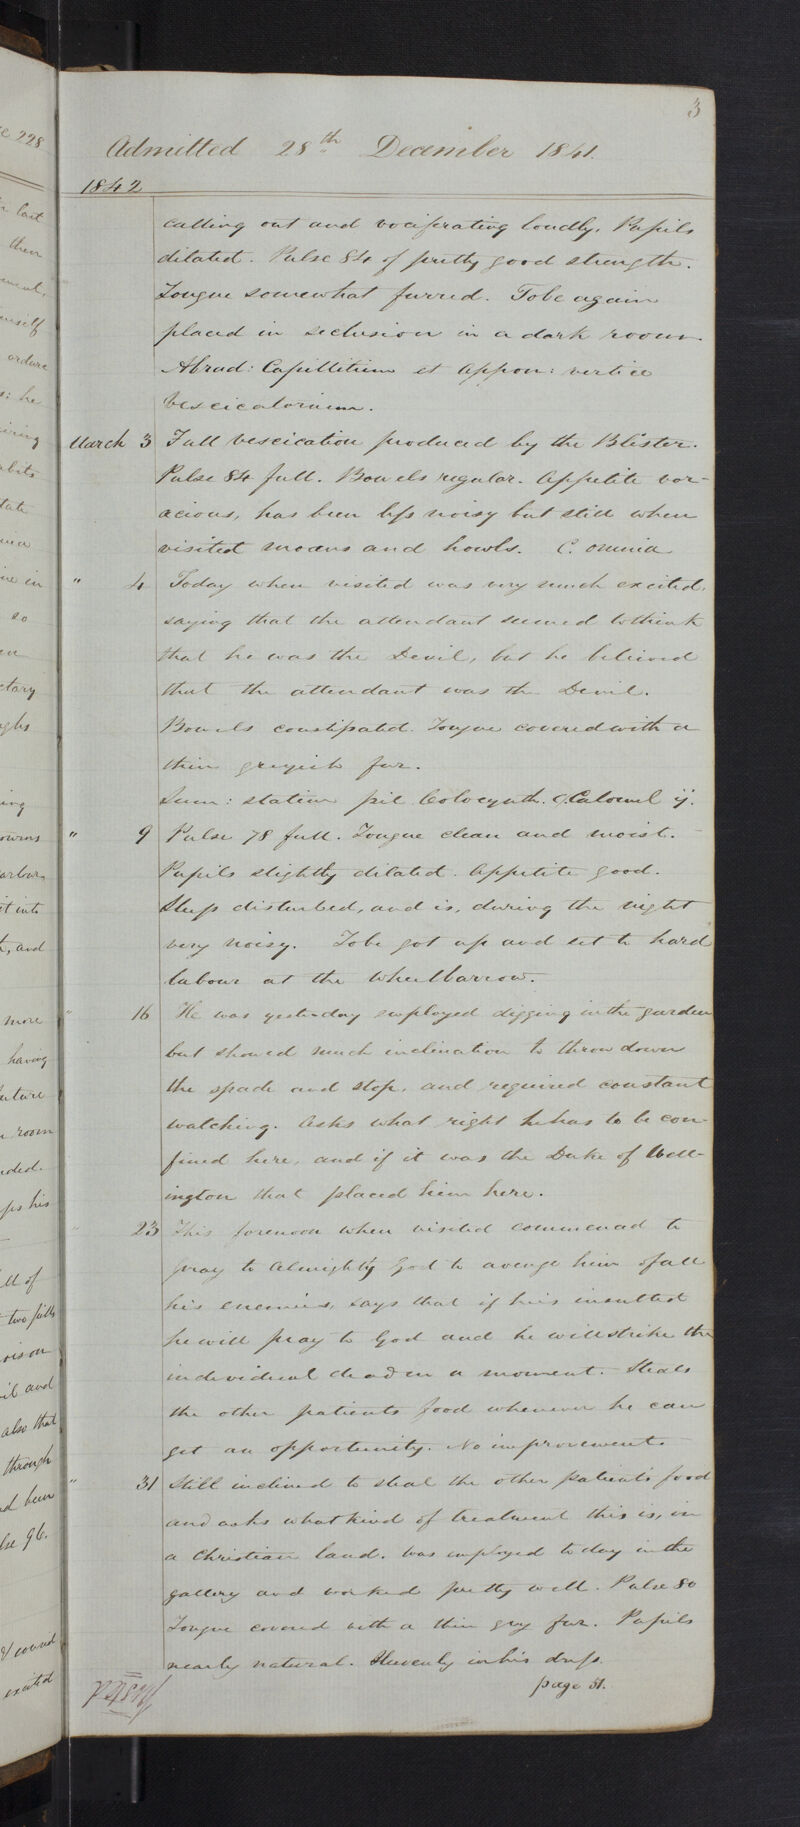 3
Admitted 28th December 1841.
1842
calling out and vociferating loudly. Pupils
dilated. Pulse 84 of pretty good strength.
Tongue somewhat furred. To be again
placed in seclusion in a dark room.
Abrad: Capillitium et appon: vertice
vescicatorium.
March 3 Full vescication produced by the Blister.
Pulse 84 full. Bowels regular. Appetite vor-
acious, has been less noisy but still when
visited moans and howls. C. omnia
" 4 Today when visited was very much excited,
saying that the attendant seemed to think
that he was the Devil, but he believed
that the attendant was the Devil.
Bowels constipated. Tongue covered with a
thin greyish fur.
Sum: statim pil Colocynth. c. Calomel ij.
" 9 Pulse 78 full. Tongue clean and moist.
Pupils slightly dilated. Appetite good.
Sleeps disturbed, and is, during the night
very noisy. To be got up and set to hard
labour at the wheelbarrow.
" 16 He was yesterday employed digging in the garden
but showed much inclination to throw down
the spade and stop, and required constant
watching. Asks what right he has to be con-
fined here, and if it was the Duke of Well-
ington that placed him here.
" 23 This forenoon when visited commenced to
pray to Almighty God to avenge him of all
his enemies, says that if he is insulted
he will pray to God and he will strike the
individual dead in a moment. Steals
the other patients food whenever he can
get an opportunity. No improvement.
" 31 Still inclined to steal the other patients food
and asks what kind of treatment this is, in
a Christian land. Was employed today in the
gallery and worked pretty well. Pulse 80
Tongue covered with a thin grey fur. Pupils
nearly natural. Slovenly in his dress.
page 51.